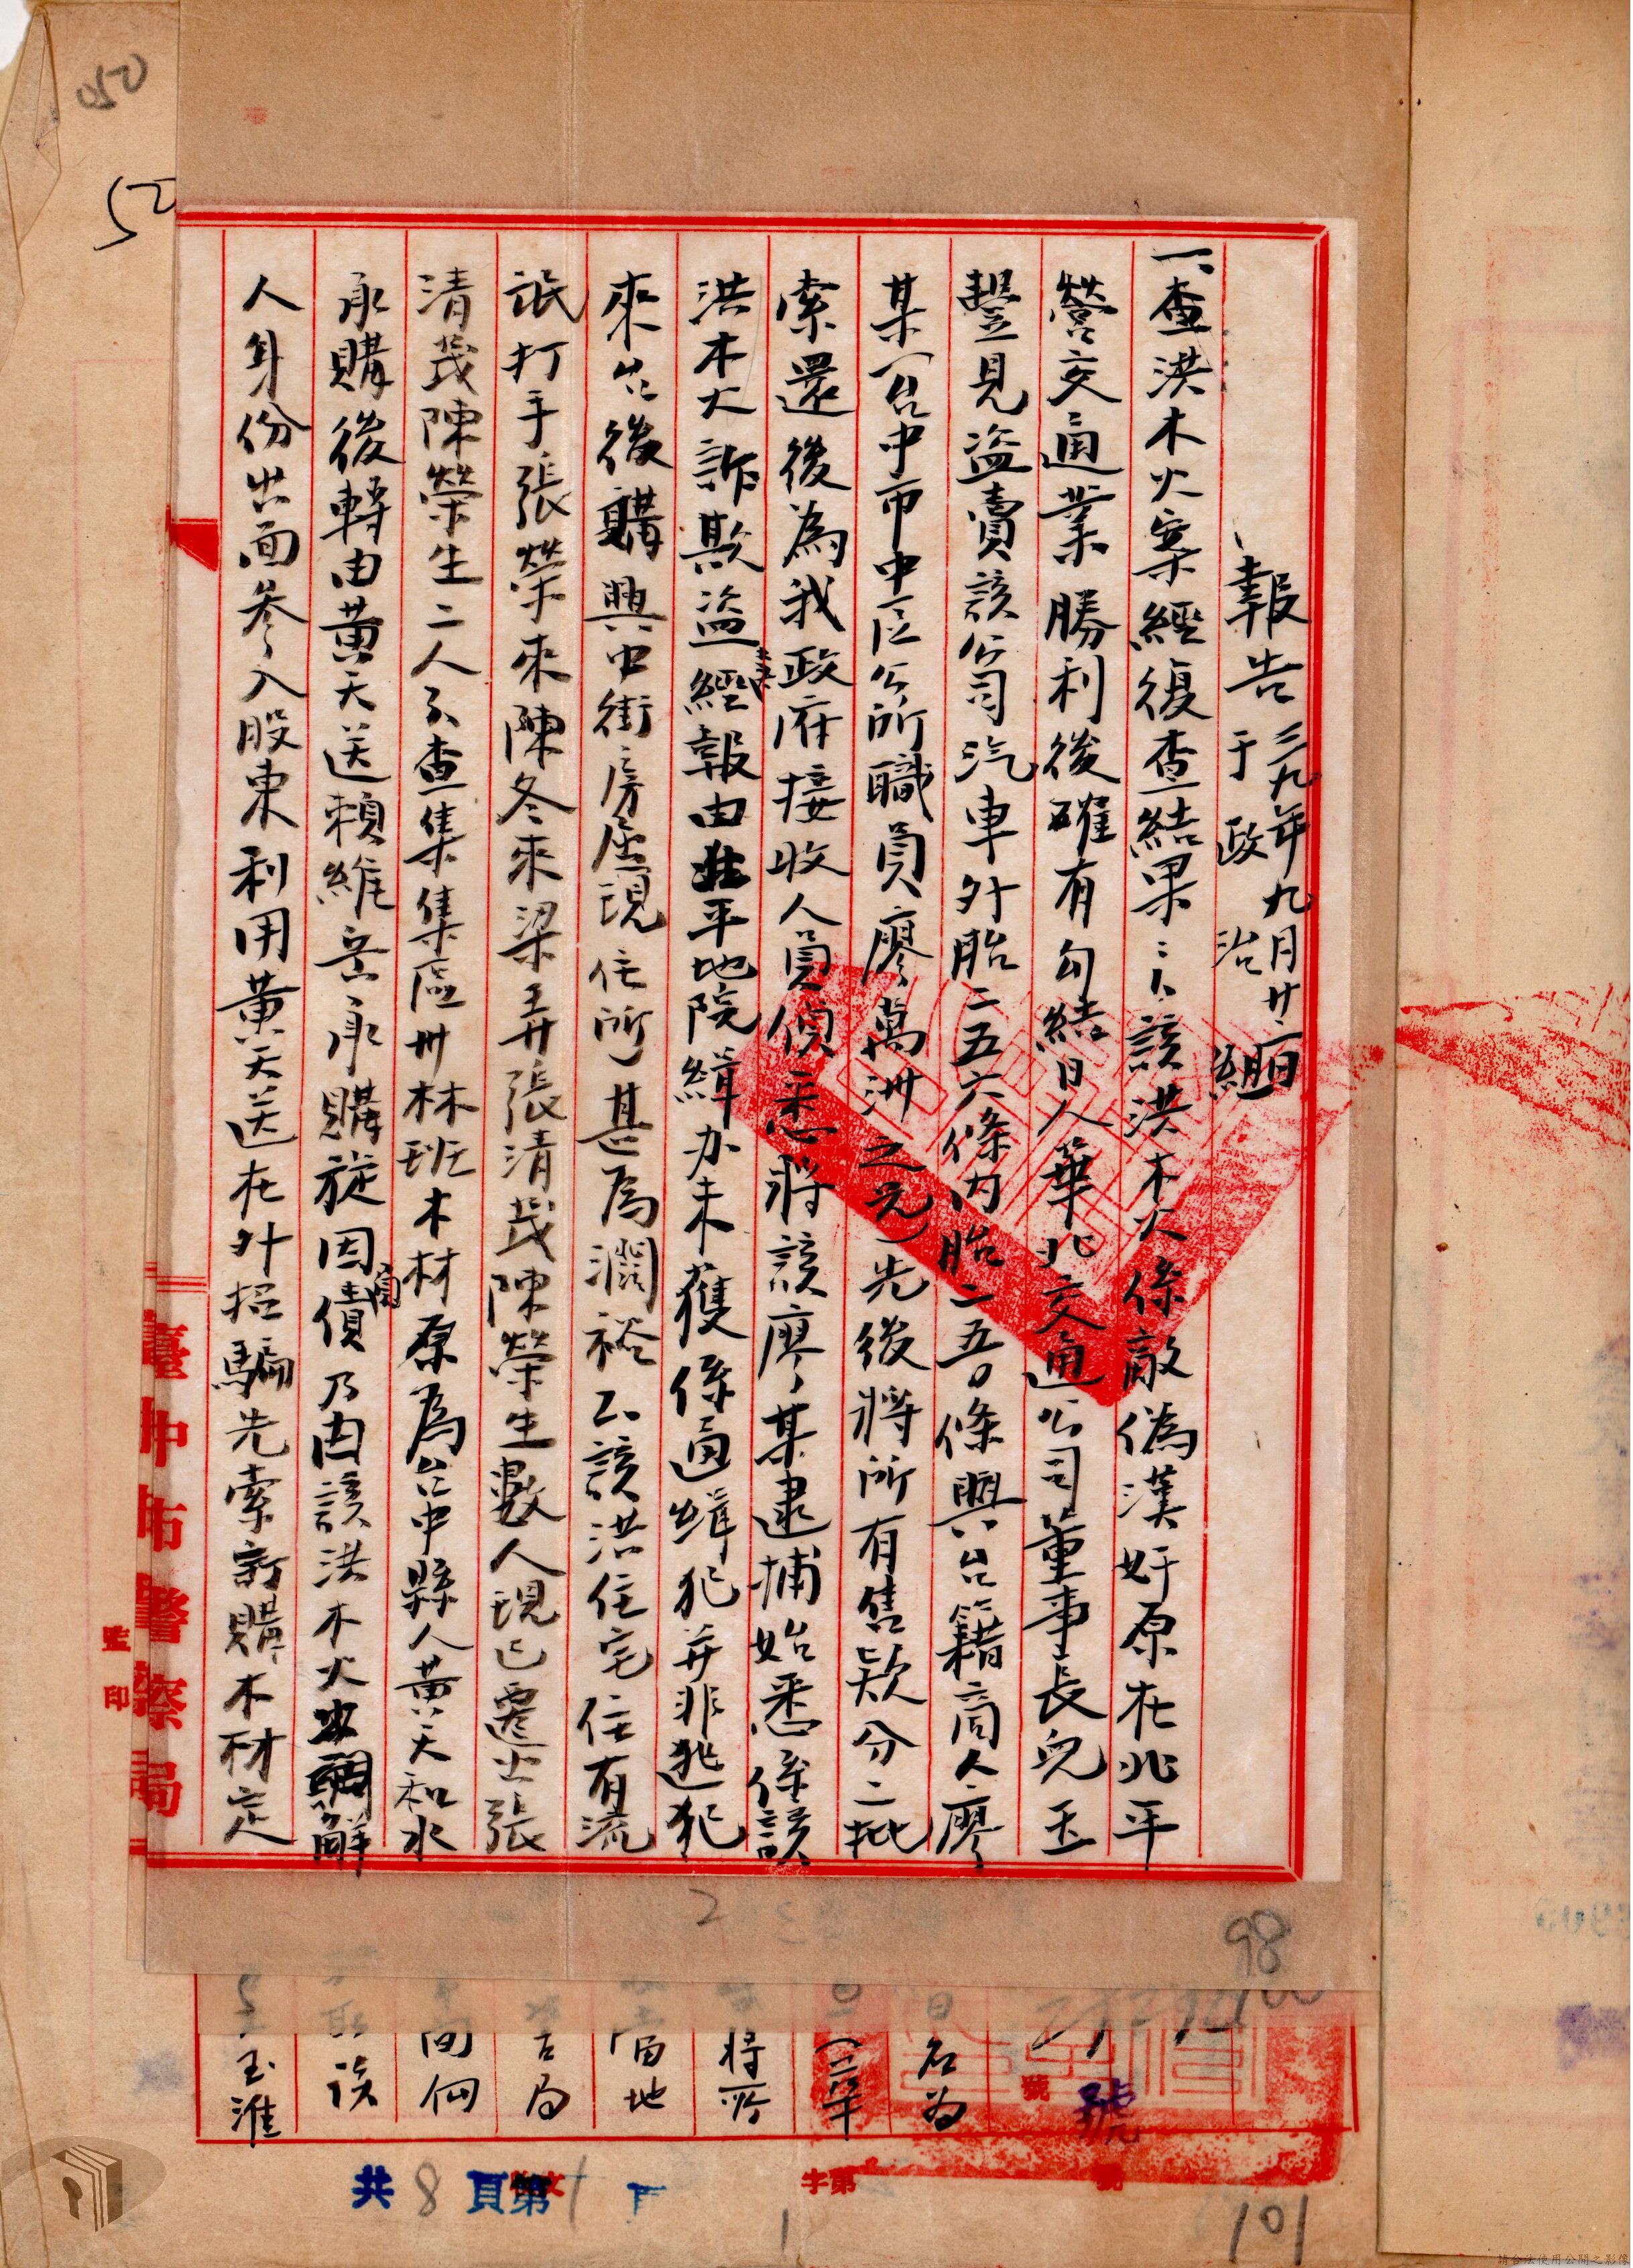 報告 三九年九月廿二日
于政治組
一、查洪木火案經復查結果：1、該洪木火係敵偽漢奸原在北平
營交通業勝利後確有勾結日人華北交通公司董事長兒玉
璺見盜賣該公司汽車外胎二五六條內胎二五〇條與台籍商人廖
某（台中市中區公所職員廖萬洲之兄）先後將所有售款分二批
索還後為我政府接收人員偵悉將該廖某逮捕始悉係該
洪木火詐欺盜賣經報由北平地院緝办未獲係通緝犯并非逃犯
來台後購興中街房屋現住所）甚為濶裕2、該洪住宅住有流
氓打手張榮來陳冬來梁弄張清茂陳榮生數人現已遷出張
清茂陳榮生二人3、查集集區卅林班木材原為台中縣人黃天和水
承購後轉由黃天送賴維岳承購旋因債商乃由該洪木火出調解
人身份出面參入股東利用黃天送在外招騙先索新購木材定
臺中市警察局
監印
52
050
98
名為
將所
留地
古局
間佃
該
玉淮
號
號
共8頁第1下
字第
號
101
請合法使用公開之影像